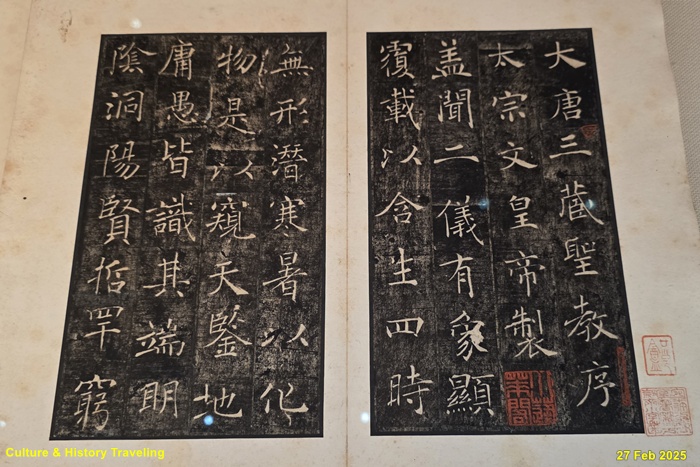 大唐三藏聖教序
太宗文皇帝製
盖聞二儀有象顯
覆載以含生四時
無形潛寒暑以化
物是以窺天鑒地
庸愚皆識其端明
陰洞陽賢哲罕窮
Culture & History Traveling
27 Feb 2025